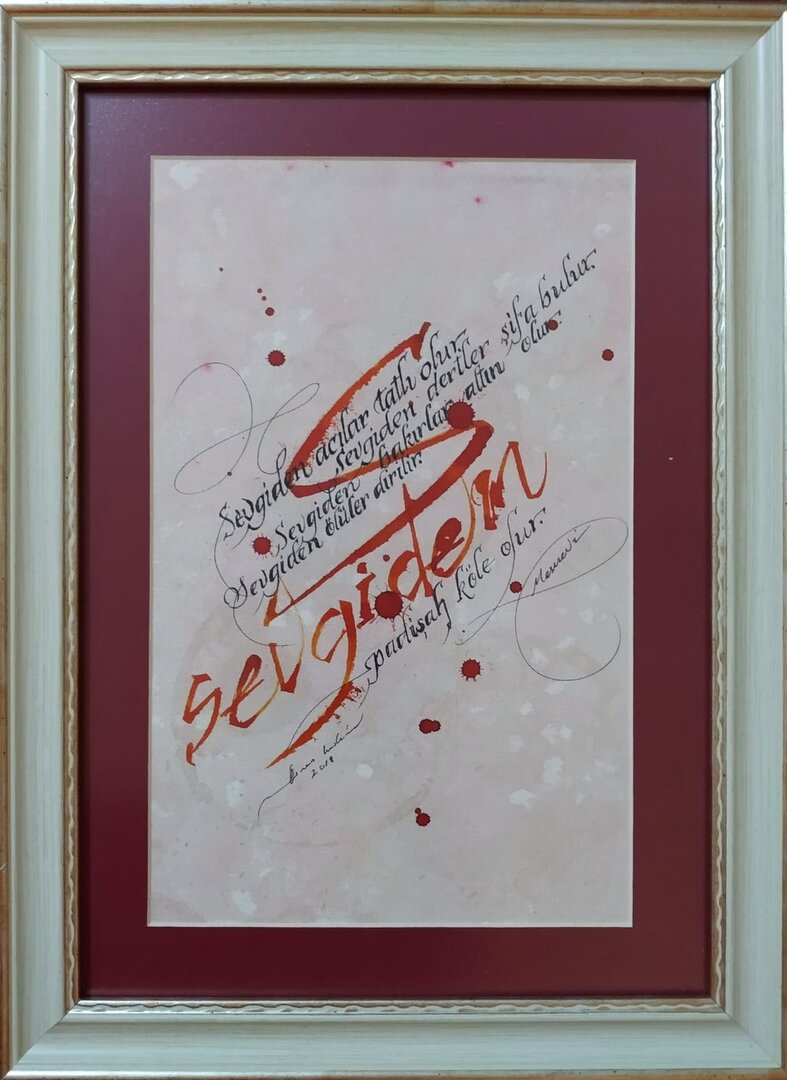 Sevgiden acılar tatlı olur.
Sevgiden dertler şifa bulur.
Sevgiden bakırlar altın olur.
Sevgiden ölüler dirilir.
sevgiden
padişah köle olur.
Mesnevi
2018